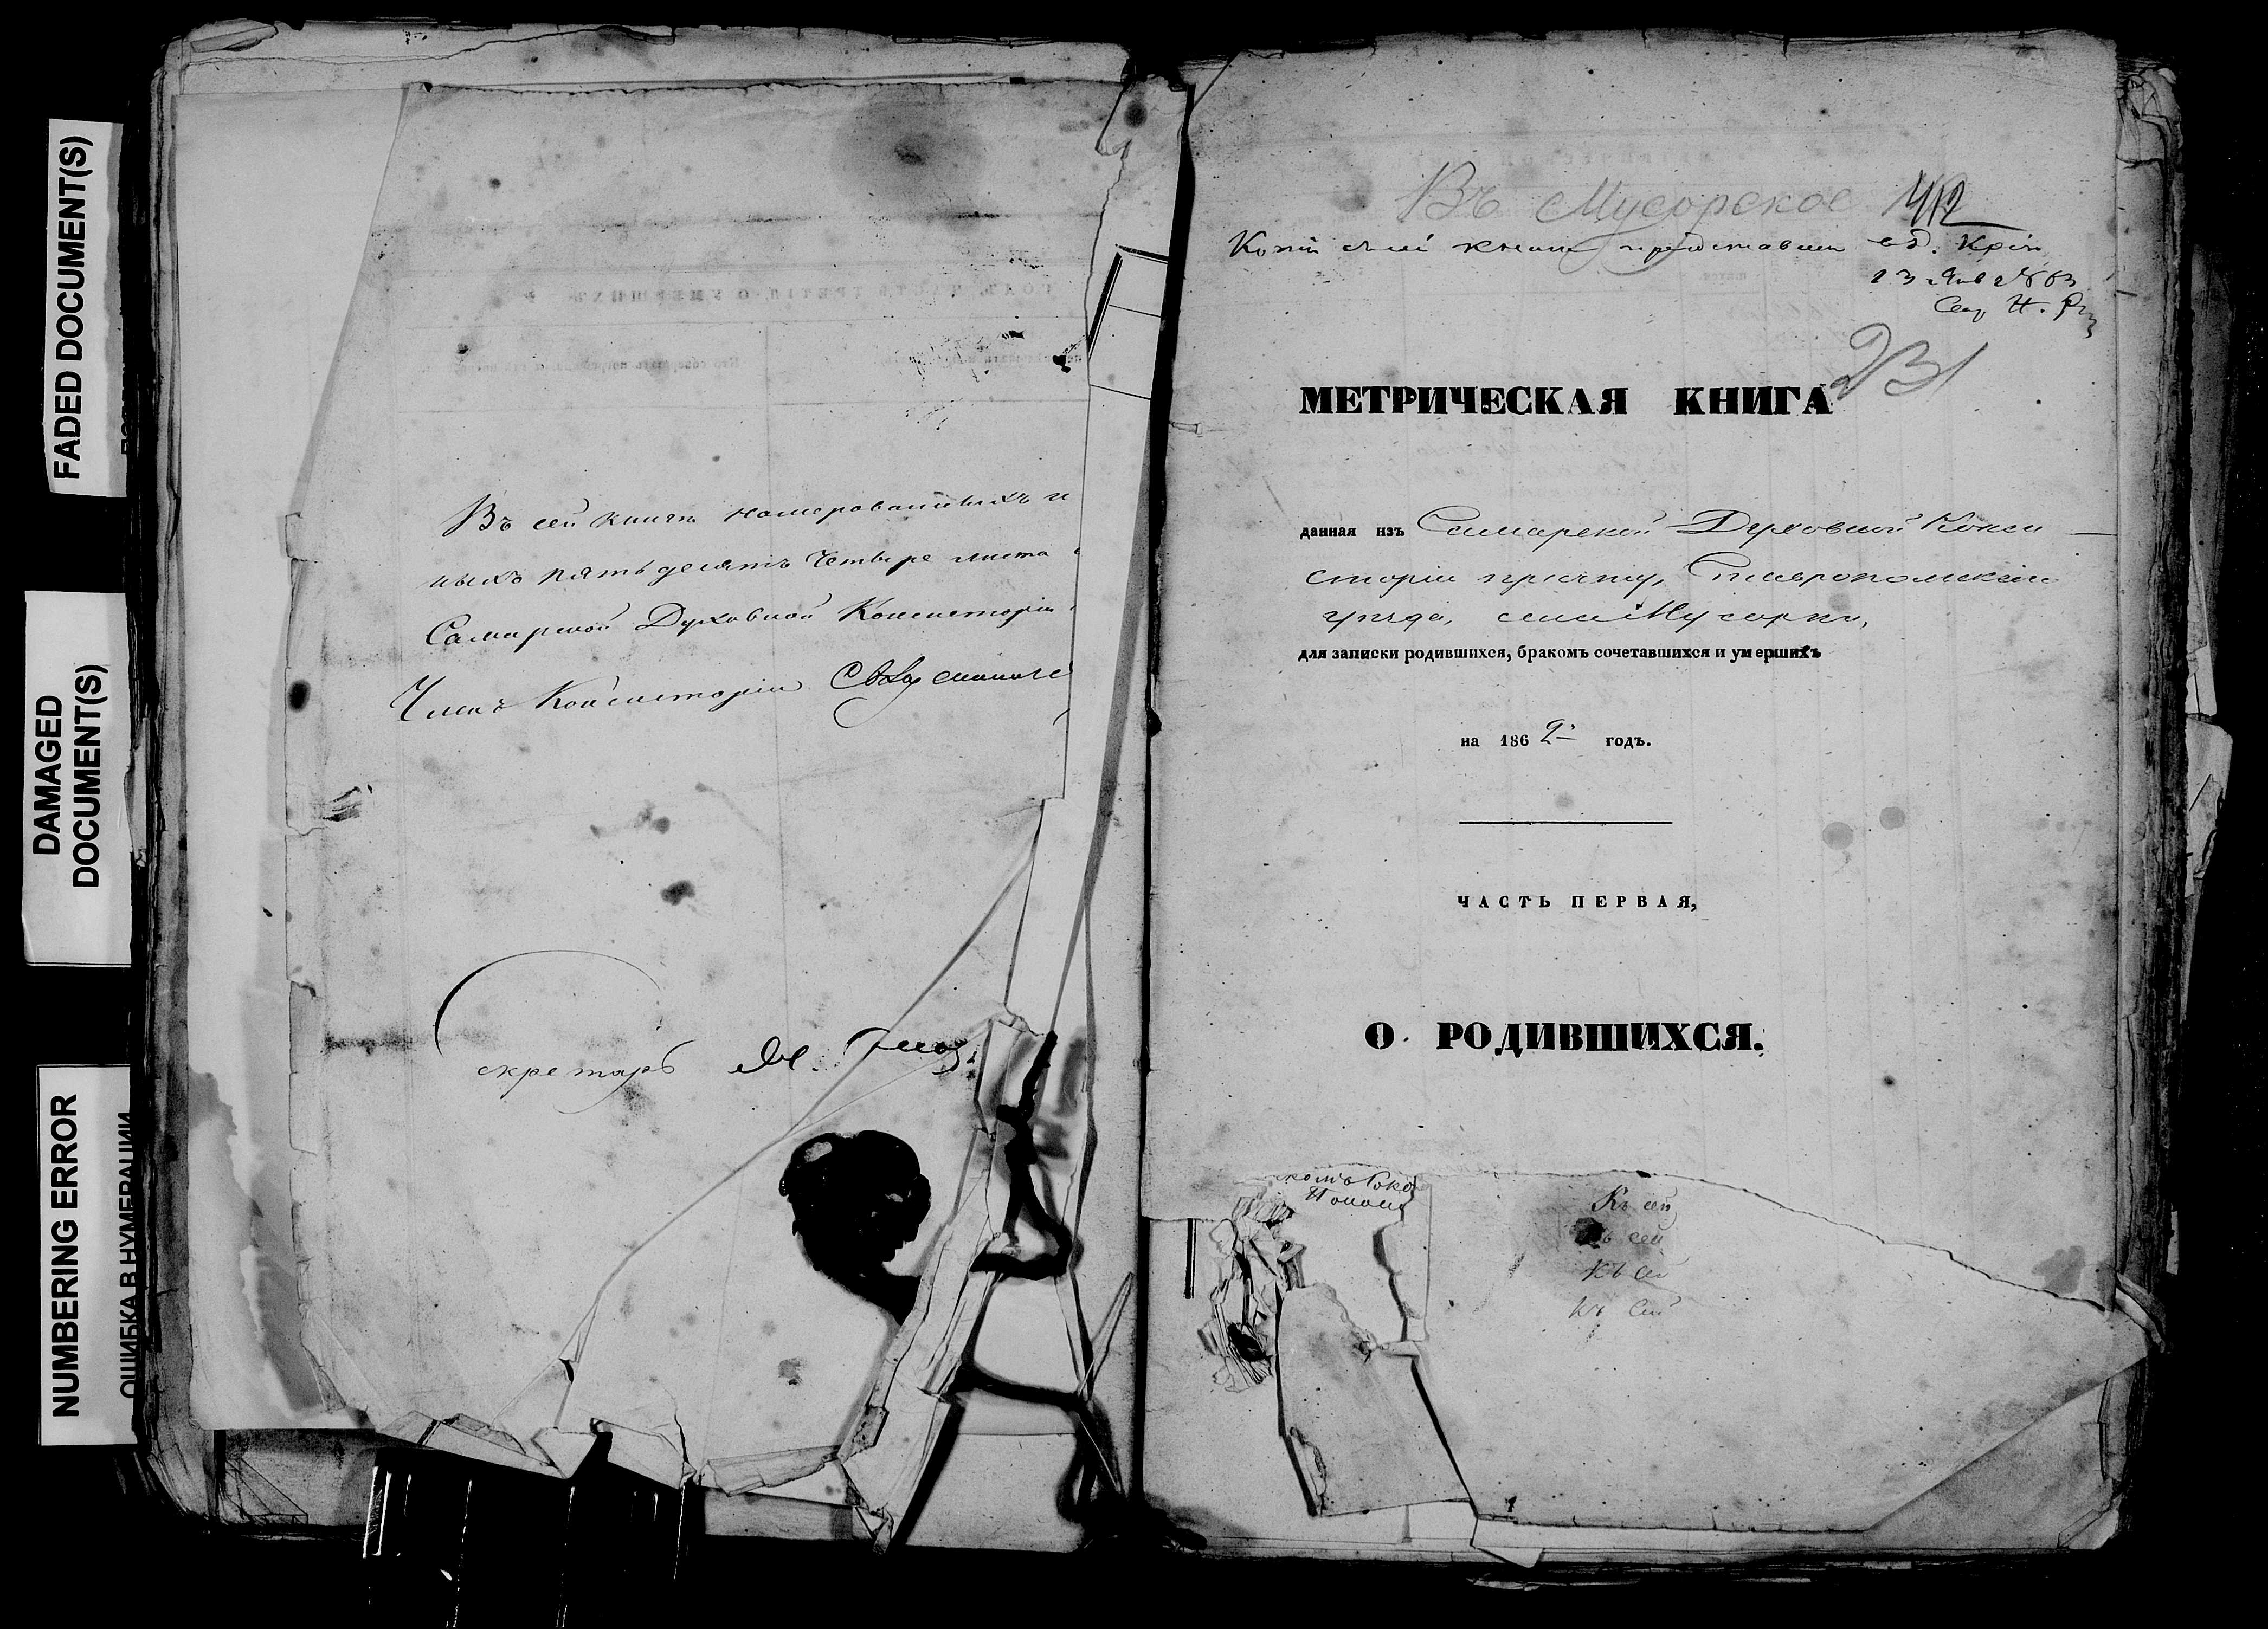 FADED DOCUMENT(S)
DAMAGED
DOCUMENT(S)
NUMBERING ERROR
ОШИБКА В НУМЕРАЦИИ
Въ сей книгѣ номерованныхъ и
ныхъ пятьдесятъ четыре листа
Самарской Духовной Консисторіи
Членъ Консисторіи
скретарь
Въ Мусорское 412
Копія сей книги
23 Янв 1863
231
МЕТРИЧЕСКАЯ КНИГА
данная изъ Самарской Духовной Конси
сторіи причту, Ставропольскаго
уѣзда, села Мусорки,
для записки родившихся, бракомъ сочетавшихся и умершихъ
на 1862 годъ.
ЧАСТЬ ПЕРВАЯ,
О РОДИВШИХСЯ.
Къ сей
Къ сей
Къ сей
Къ сей